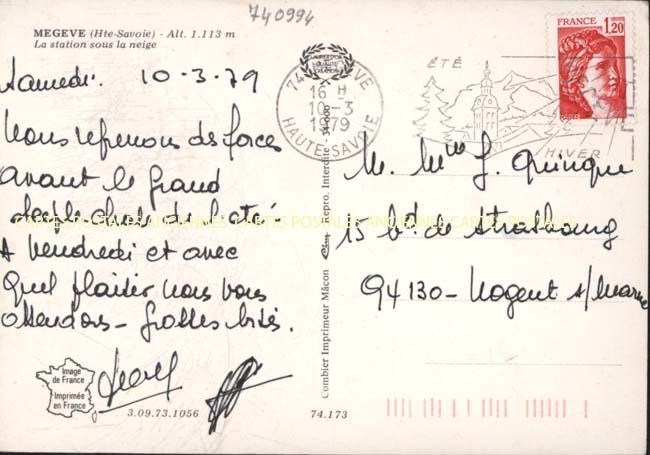 740994
MEGEVE (Hte-Savoie) - Alt. 1.113 m
La station sous la neige
Samedi. 10-3-79
Nous reprenons des forces
avant le grand
A Vendredi et avec
quel plaisir nous vous
attendons - grosses bises.
Image
de France
Imprimée
en France
3.09.73.1056
74.173
Combier Imprimeur Mâcon
Repro. Interdite
74 MEGEVE
16 H
10-3
1979
HAUTE-SAVOIE
ÉTÉ
HIVER
FRANCE
1,20
M. Mme J. Quinque
15 bd de Strasbourg
94130-Nogent s/Marne
CARTES POSTALES ANCIENNES CARTES POSTALES ANCIENNES CARTES POSTALES